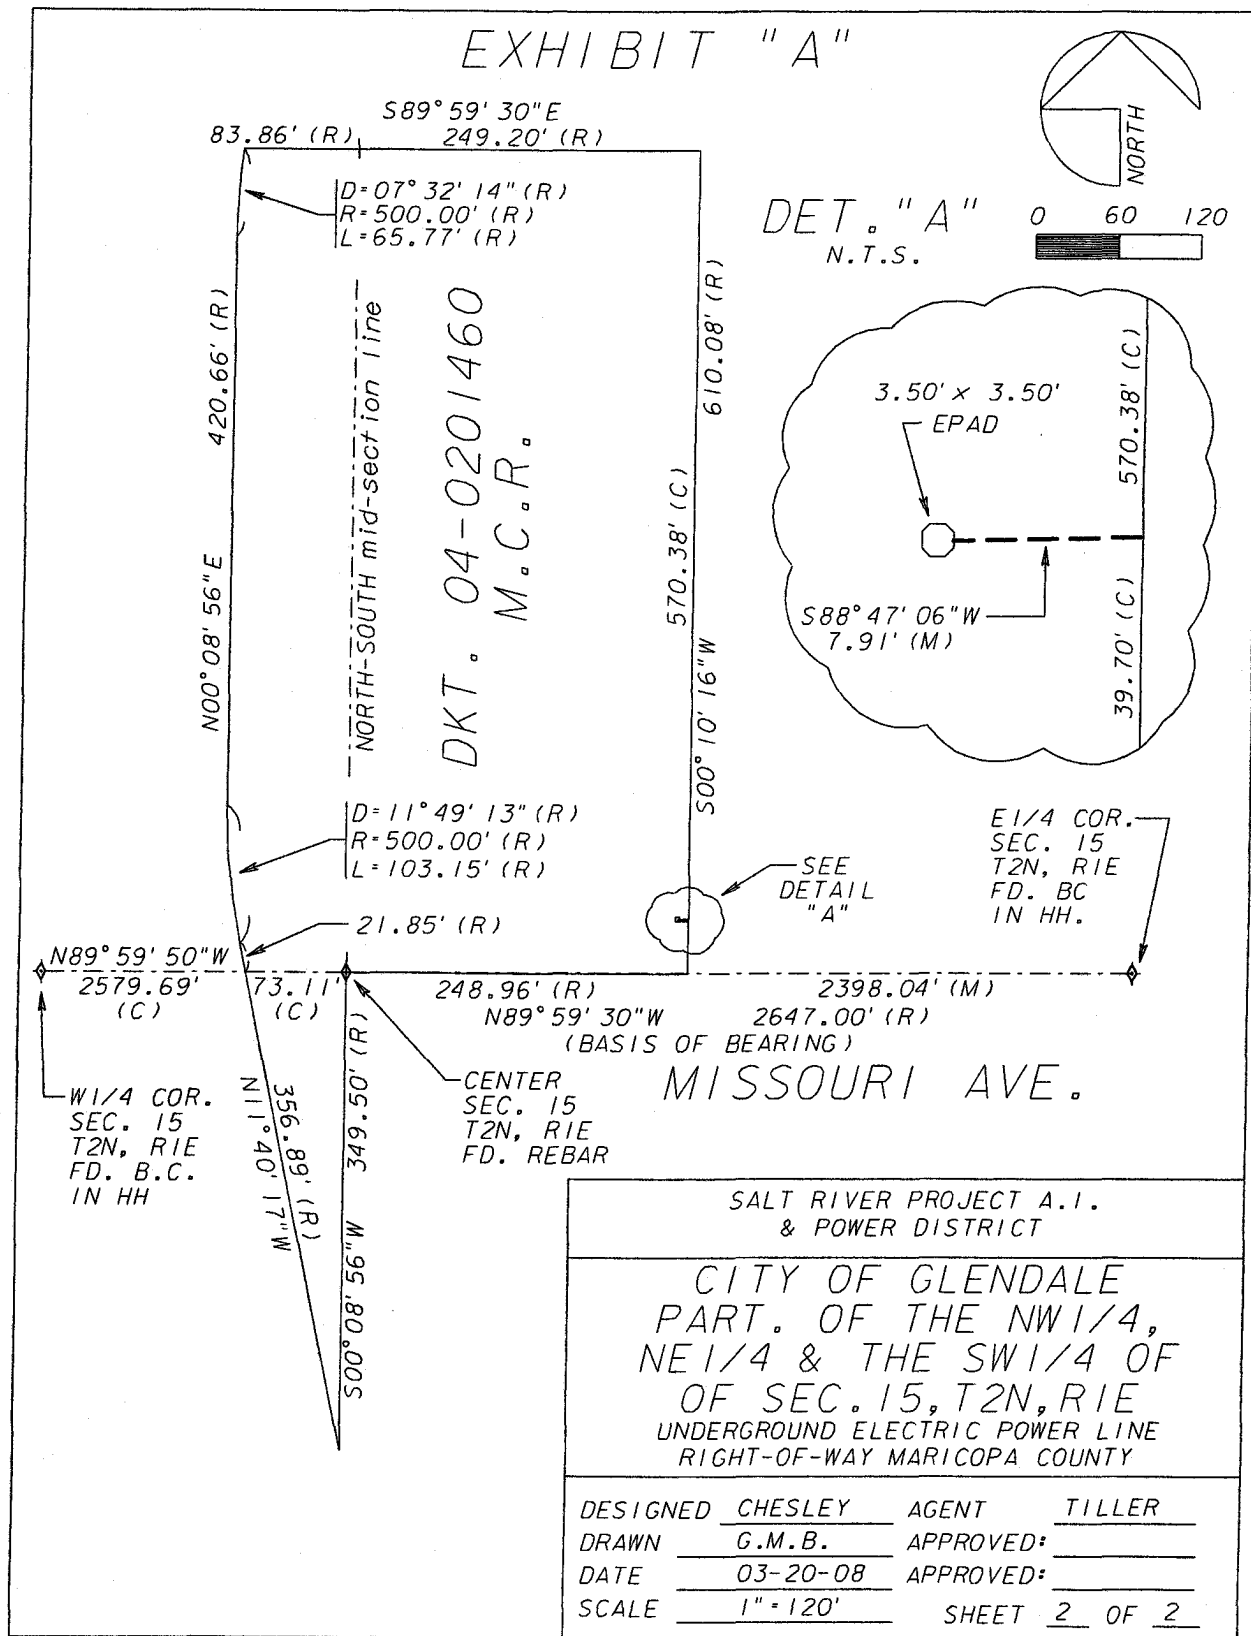 EXHIBIT "A"
S89°59'30"E
83.86' (R)
249.20' (R)
NORTH
D=07°32'14" (R)
R=500.00' (R)
L=65.77' (R)
DET. "A"
N.T.S.
0 60 120
420.66' (R)
N00°08'56"E
NORTH-SOUTH mid-section line
DKT. 04-0201460
M.C.R.
610.08' (R)
570.38' (C)
S00°10'16"W
3.50' x 3.50'
EPAD
570.38' (C)
S88°47'06"W
7.91' (M)
39.70' (C)
D=11°49'13" (R)
R=500.00' (R)
L=103.15' (R)
21.85' (R)
SEE
DETAIL
"A"
E1/4 COR.
SEC. 15
T2N, R1E
FD. BC
IN HH.
N89°59'50"W
2579.69'
(C)
73.11'
(C)
248.96' (R)
2398.04' (M)
N89°59'30"W
2647.00' (R)
(BASIS OF BEARING)
MISSOURI AVE.
W1/4 COR.
SEC. 15
T2N, R1E
FD. B.C.
IN HH
356.89' (R)
N11°40'17"W
349.50' (R)
S00°08'56"W
CENTER
SEC. 15
T2N, R1E
FD. REBAR
SALT RIVER PROJECT A.I.
& POWER DISTRICT
CITY OF GLENDALE
PART. OF THE NW1/4,
NE1/4 & THE SW1/4 OF
OF SEC.15,T2N,R1E
UNDERGROUND ELECTRIC POWER LINE
RIGHT-OF-WAY MARICOPA COUNTY
DESIGNED CHESLEY AGENT TILLER
DRAWN G.M.B. APPROVED:
DATE 03-20-08 APPROVED:
SCALE 1"=120' SHEET 2 OF 2